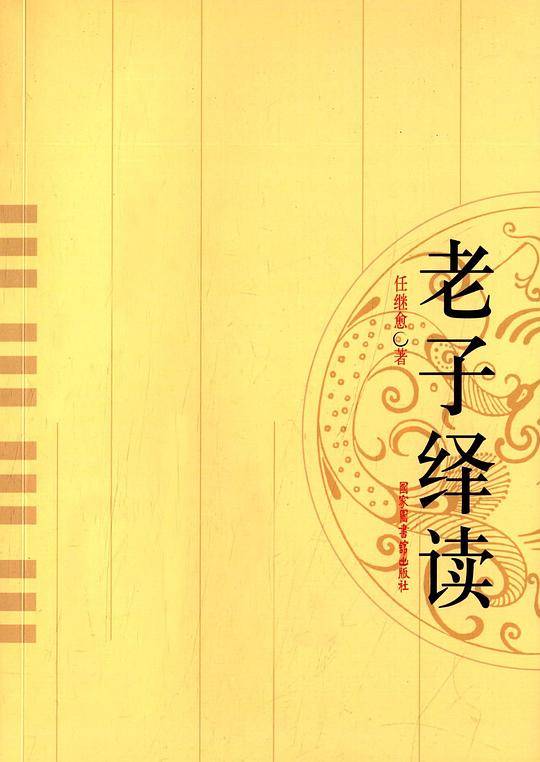 老子绎读
任继愈 著
國家圖書館出版社